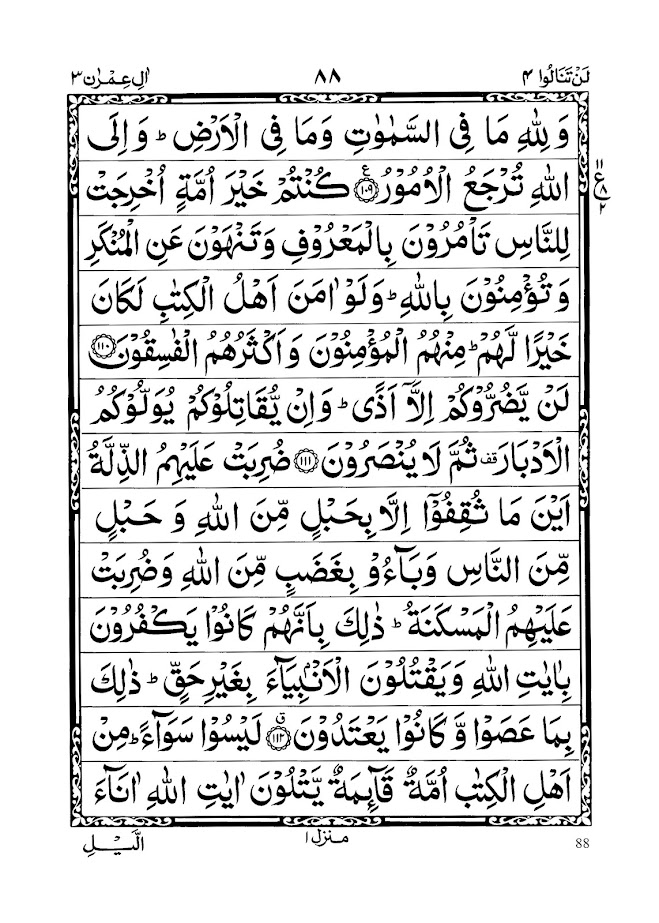 لَنْ تَنَالُوا ۴ ۸۸ اٰلِ عِمْرٰن ۳
وَ لِلّٰهِ مَا فِی السَّمٰوٰتِ وَمَا فِی الْاَرْضِ ؕ وَ اِلَی
اللّٰهِ تُرْجَعُ الْاُمُوْرُ ﴿۱۰۹﴾ ع كُنْتُمْ خَيْرَ اُمَّةٍ اُخْرِجَتْ
۱۱
ع ۸
۲
لِلنَّاسِ تَاْمُرُوْنَ بِالْمَعْرُوْفِ وَ تَنْهَوْنَ عَنِ الْمُنْكَرِ
وَ تُؤْمِنُوْنَ بِاللّٰهِ ؕ وَ لَوْ اٰمَنَ اَهْلُ الْكِتٰبِ لَكَانَ
خَيْرًا لَّهُمْ ؕ مِنْهُمُ الْمُؤْمِنُوْنَ وَ اَكْثَرُهُمُ الْفٰسِقُوْنَ ﴿۱۱۰﴾
لَنْ يَّضُرُّوْكُمْ اِلَّاۤ اَذًی ؕ وَ اِنْ يُّقَاتِلُوْكُمْ يُوَلُّوْكُمُ
الْاَدْبَارَ قف ثُمَّ لَا يُنْصَرُوْنَ ﴿۱۱۱﴾ ضُرِبَتْ عَلَيْهِمُ الذِّلَّةُ
اَيْنَ مَا ثُقِفُوْۤا اِلَّا بِحَبْلٍ مِّنَ اللّٰهِ وَ حَبْلٍ
مِّنَ النَّاسِ وَ بَآءُوْ بِغَضَبٍ مِّنَ اللّٰهِ وَ ضُرِبَتْ
عَلَيْهِمُ الْمَسْكَنَةُ ؕ ذٰلِكَ بِاَنَّهُمْ كَانُوْا يَكْفُرُوْنَ
بِاٰيٰتِ اللّٰهِ وَ يَقْتُلُوْنَ الْاَنْۢبِيَآءَ بِغَيْرِ حَقٍّ ؕ ذٰلِكَ
بِمَا عَصَوْا وَّ كَانُوْا يَعْتَدُوْنَ ﴿۱۱۲﴾ ق لَيْسُوْا سَوَآءً ؕ مِنْ
اَهْلِ الْكِتٰبِ اُمَّةٌ قَآئِمَةٌ يَّتْلُوْنَ اٰيٰتِ اللّٰهِ اٰنَآءَ
88 منزل ۱ الَّيْلِ